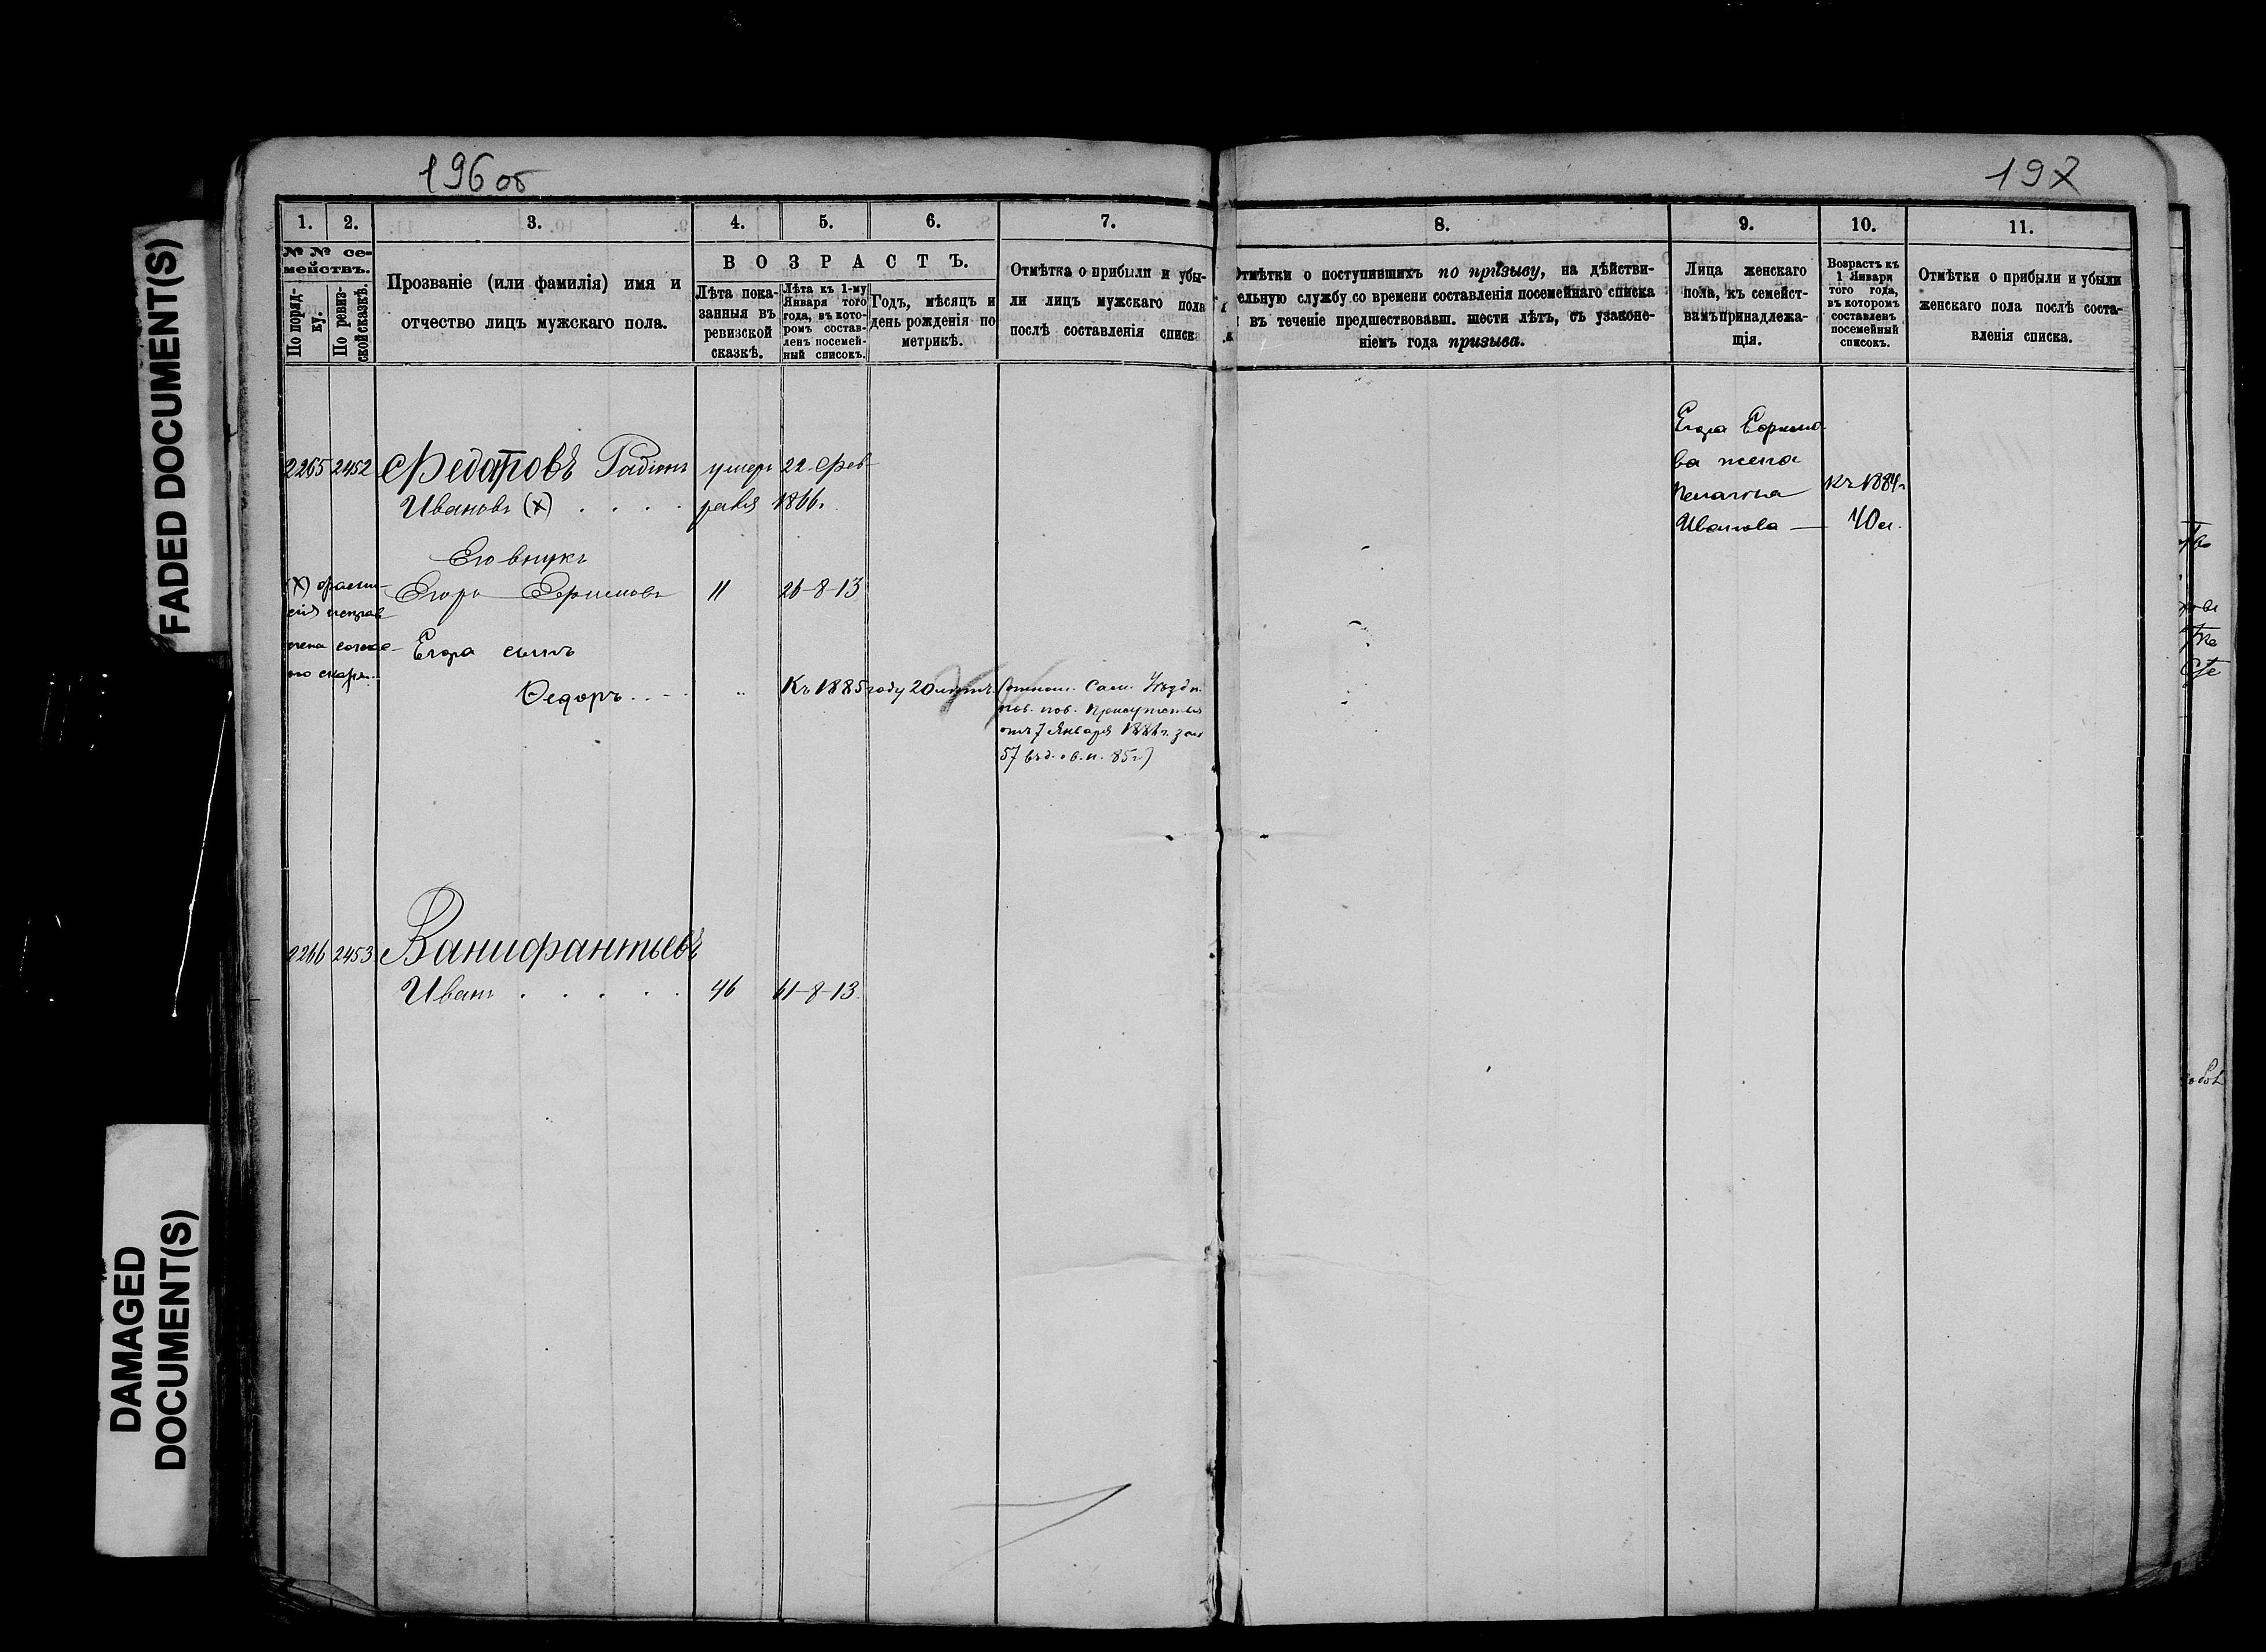 FADED DOCUMENT(S)
DAMAGED
DOCUMENT(S)
196 об
1. 2. 3. 4. 5. 6. 7.
№ № се-
мействъ.
По поряд-
ку.
По ревиз-
ской сказкѣ.
Прозваніе (или фамилія) имя и
отчество лицъ мужскаго пола.
ВОЗРАСТЪ.
Лѣта пока-
занныя въ
ревизской
сказкѣ.
Лѣта къ 1-му
Января того
года, въ кото-
ромъ состав-
ленъ посемей-
ный списокъ.
Годъ, мѣсяцъ и
день рожденія по
метрикѣ.
Отмѣтка о прибыли и убы-
ли лицъ мужскаго пола
послѣ составленія списка
2265 2452 Федотовъ Радіонъ умеръ 22 Фев-
Ивановъ (х) . . . . раля 1866г.
Его внукъ
Егоръ Ефимовъ 11 26-8-13
(х)
Егора сынъ
Федоръ . . - " Къ 1885 году 20 лѣтъ
от 7 Января
57 85г.)
2266 2453 Ванифантьевъ
Иванъ . . . . . 46 61-8-13
197
8. 9. 10. 11.
Отмѣтки о поступившихъ по призыву, на дѣйстви-
ельную службу со времени составленія посемейнаго списка
и въ теченіе предшествовавш. шести лѣтъ, съ узаконе-
ніемъ года призыва.
Лица женскаго
пола, къ семейст-
вамъ принадлежа-
щія.
Возрастъ къ
1 Января
того года,
въ которомъ
составленъ
посемейный
списокъ.
Отмѣтки о прибыли и убыли
женскаго пола послѣ соста-
вленія списка.
Егора Ефимо-
ва жена
Пелагѣя къ 1884г
Иванова — 40 л.